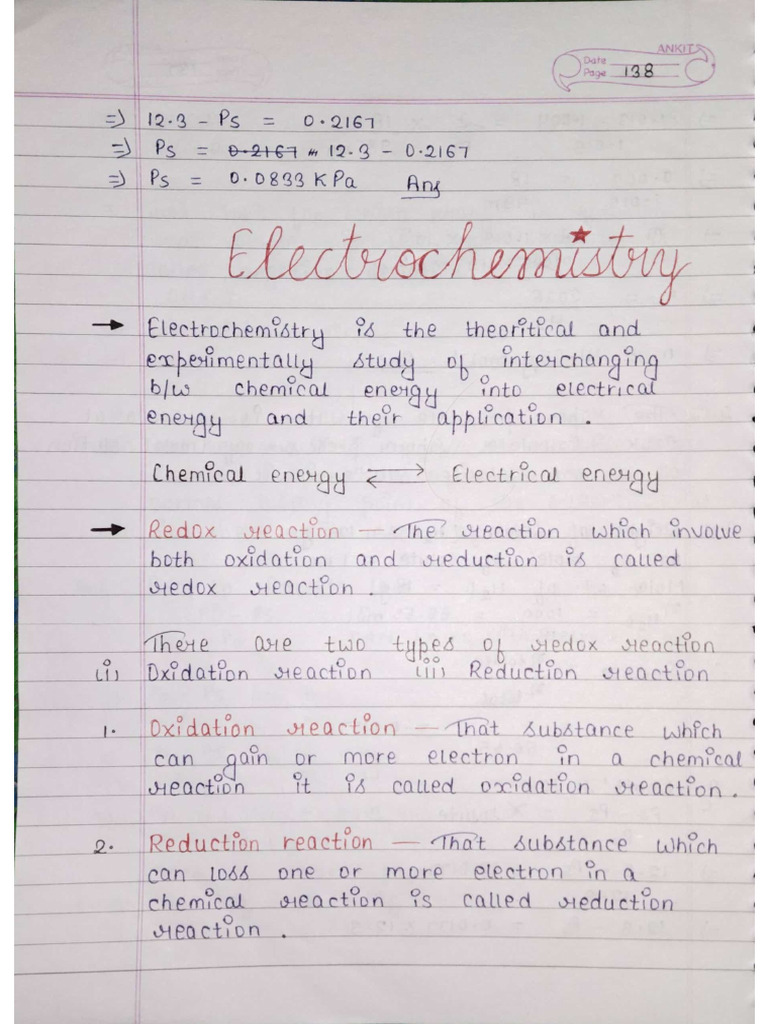 ANKIT
Date
Page 138
=> 12.3 - Ps = 0.2167
=> Ps = 0.2167 12.3 - 0.2167
=> Ps = 0.0833 KPa Ans
Electrochemistry
→ Electrochemistry is the theoritical and
experimentally study of interchanging
b/w chemical energy into electrical
energy and their application.
Chemical energy ⇌ Electrical energy
→ Redox reaction — The reaction which involve
both oxidation and reduction is called
redox reaction.
There are two types of redox reaction
(i) Oxidation reaction (ii) Reduction reaction
1. Oxidation reaction — That substance which
can gain or more electron in a chemical
reaction it is called oxidation reaction.
2. Reduction reaction — That substance which
can loss one or more electron in a
chemical reaction is called reduction
reaction.